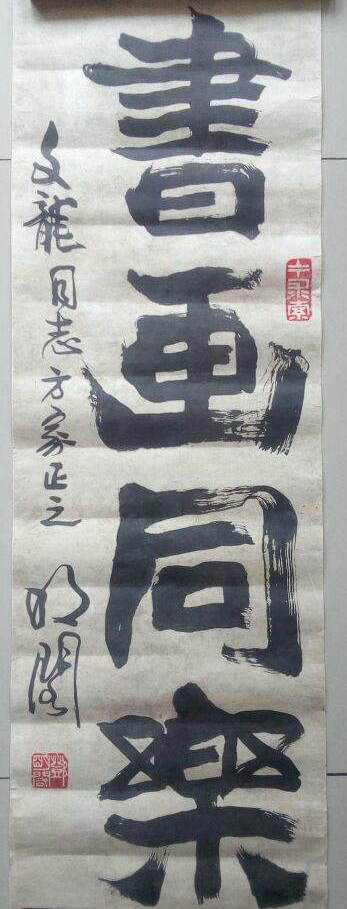 書画同樂
文龍同志方家正之
明閣